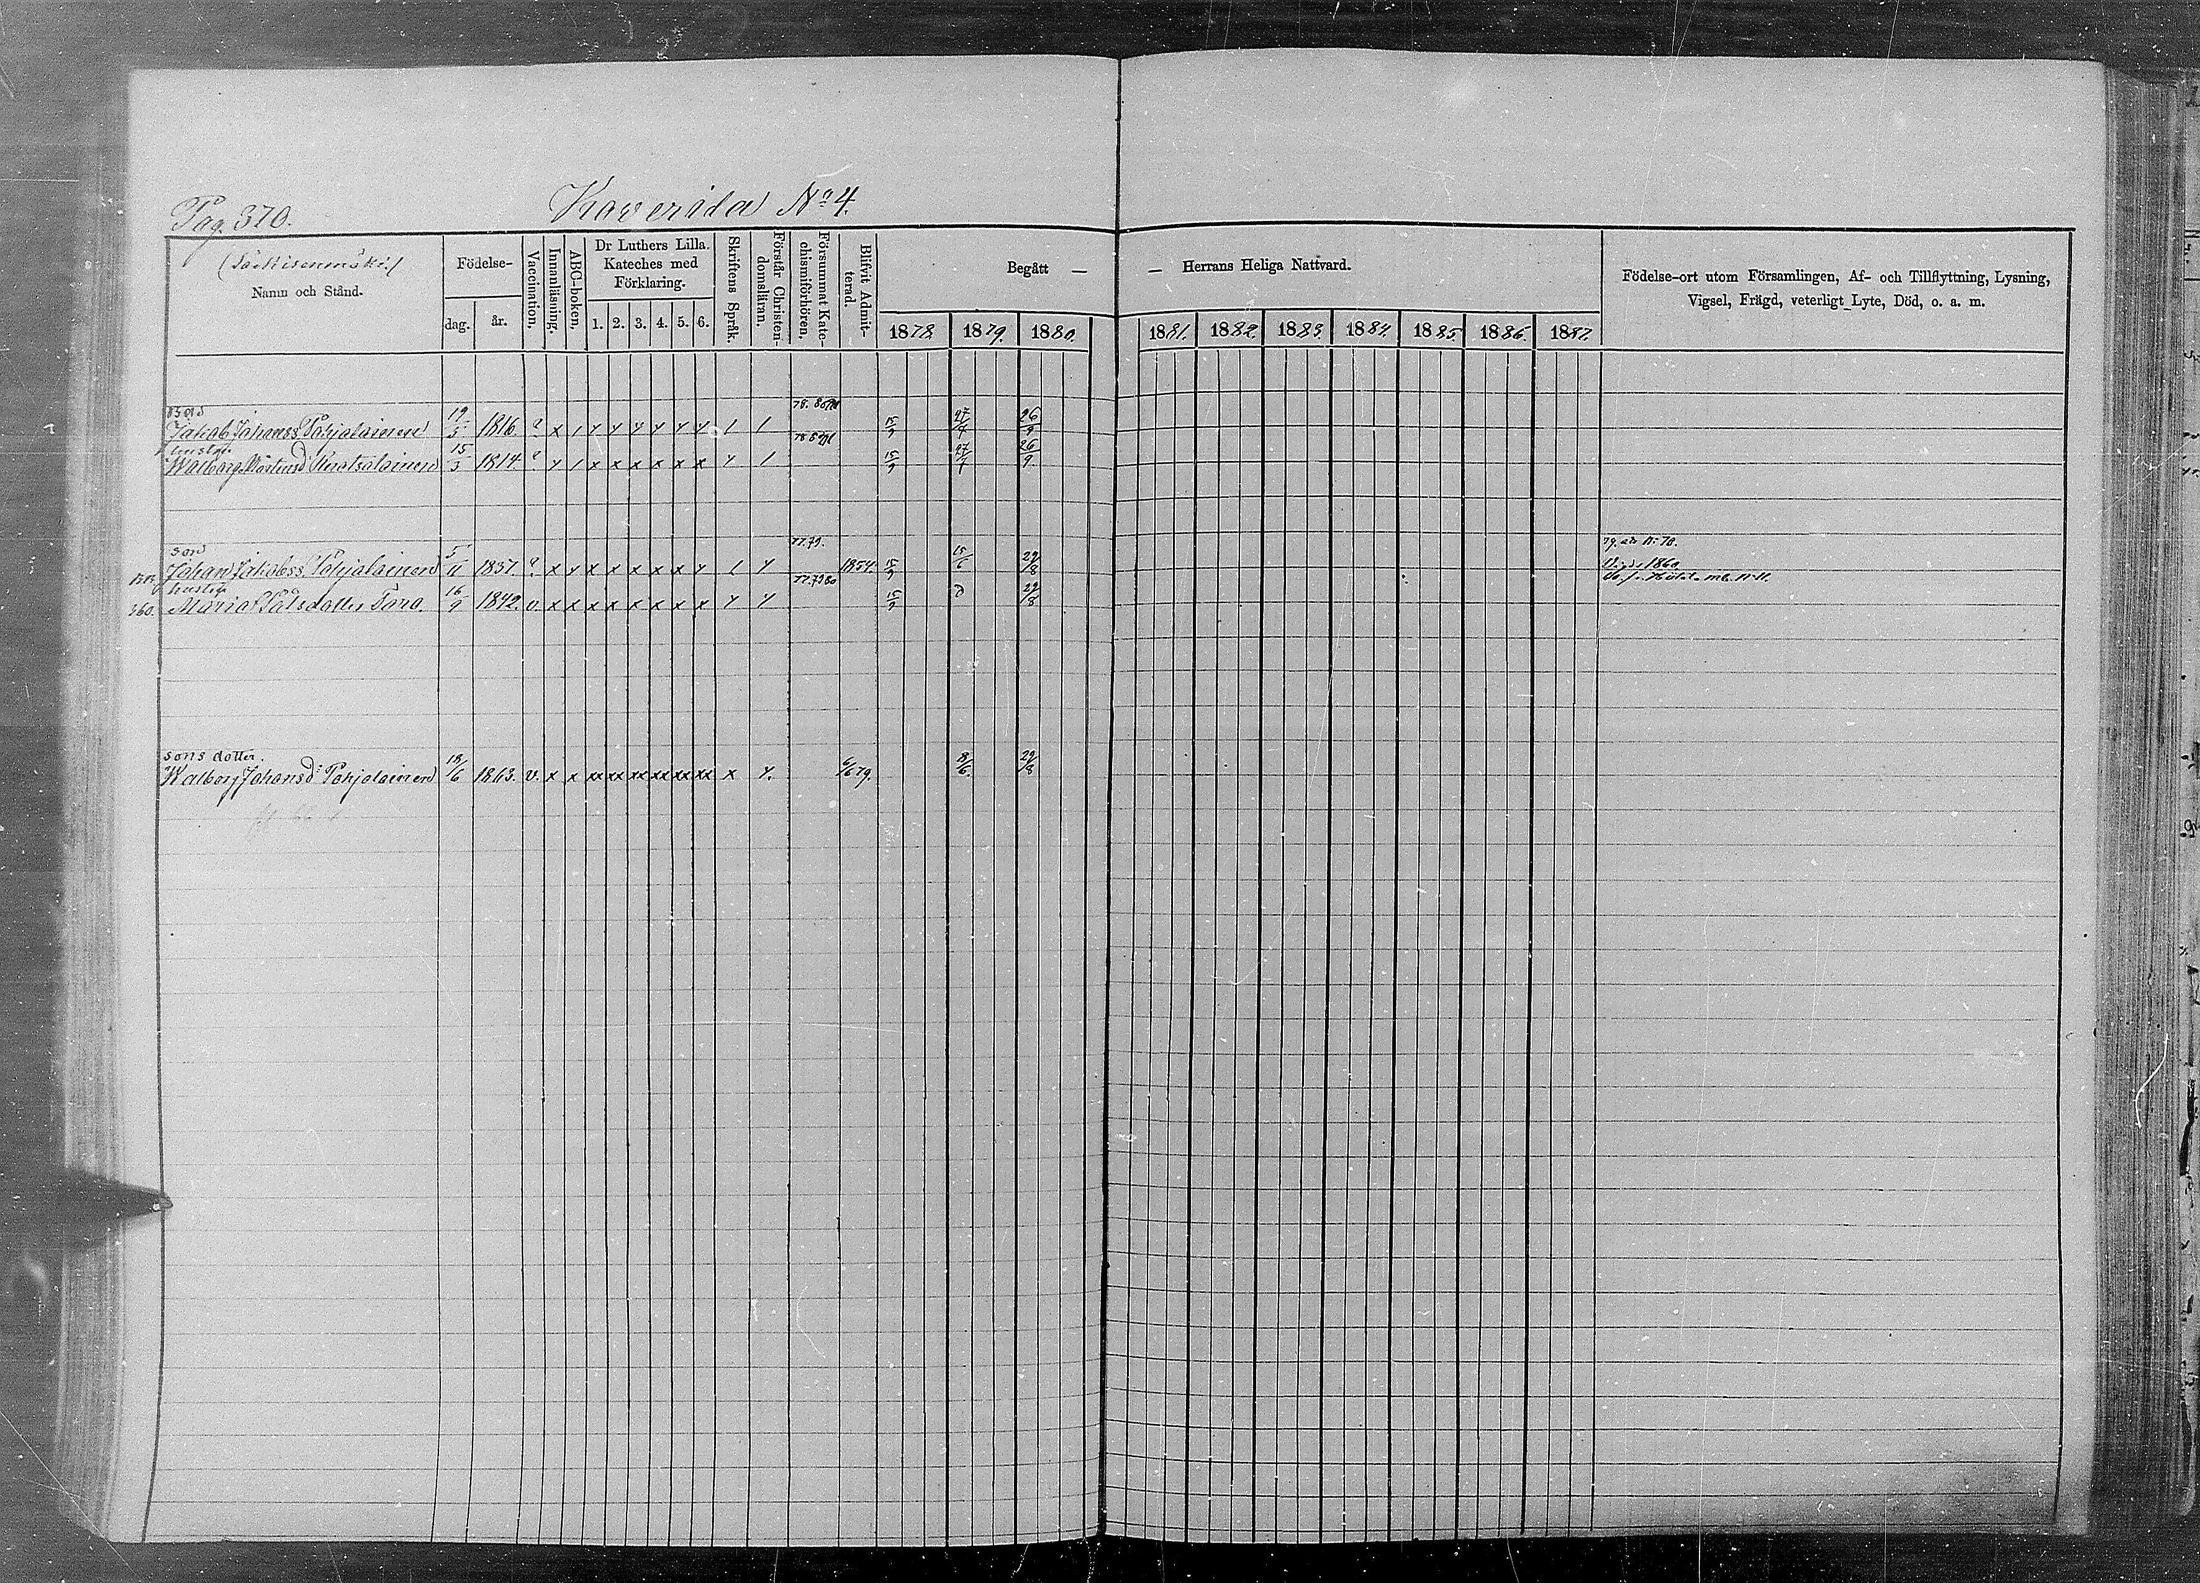 Pag. 370.
Koverila No 4.
Namn och Stånd.
Födelse-
dag. år.
Vaccination.
Innanläsning.
ABC-boken.
Dr Luthers Lilla.
Kateches med
Förklaring.
1. 2. 3. 4. 5. 6.
Skriftens Språk.
Förstår Christen-
domsläran.
Försummat Kate-
chismiförhören.
Blifvit Admit-
terad.
Begått — — Herrans Heliga Nattvard.
1878. 1879. 1880. 1881. 1882. 1883. 1884. 1885. 1886. 1887.
Födelse-ort utom Församlingen, Af- och Tillflyttning, Lysning,
Vigsel, Frägd, veterligt Lyte, Död, o. a. m.
Jakob Johanss. Pohjalainen 19/5 1816. ? x 1 15/9 27/4 26/9
hustru
Walborg Mårtensd 15/3 1814. ? y 1 x x x x x x y 1 15/9 27/4 26/9
son 77.79.
Johan Jakobss. Pohjalainen 5/11 1837. ? x y x x x x x y 1 y 1854. 15/9 15/6 29/8
hustru 77.79 80
360. Maria Pålsdotter 16/9 1842. v. x x x x x x x x y y 15/9 29/8
sons dotter.
Walborg Johansd: Pohjalainen 18/6 1863. v. x x xx xx xx xx xx xx x y. 6/6 79. 8/6. 29/8